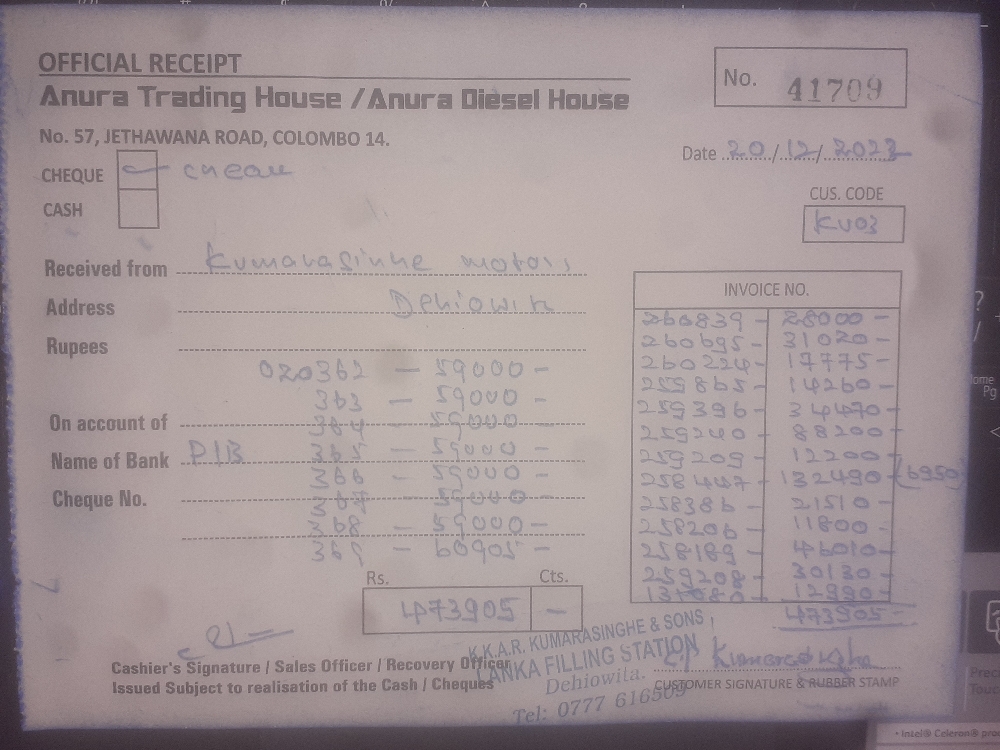 OFFICIAL RECEIPT
No. 41709
Anura Trading House / Anura Diesel House
No. 57, JETHAWANA ROAD, COLOMBO 14.
Date 20/12/2022
CHEQUE
CASH
CUS. CODE
KU03
Received from Kumarasinhe motors
Address Dehiowita
Rupees
020362 - 59000 -
363 - 59000 -
On account of 364 - 59000 -
Name of Bank PIB 365 - 59000 -
366 - 59000 -
Cheque No. 367 - 59000 -
368 - 59000 -
369 - 60905 -
INVOICE NO.
260839 - 28000 -
260695 - 31020 -
260224 - 17775 -
259865 - 14260 -
259396 - 34470 -
259240 - 88200 -
259209 - 12200 -
258447 - 132490 - (6950)
258386 - 21510 -
258206 - 11800 -
258189 - 46010 -
259208 - 30130 -
12990 -
473905 -
Rs. Cts.
473905 -
K.K.A.R. KUMARASINGHE & SONS
LANKA FILLING STATION
Dehiowita.
Tel: 0777 616509
Cashier's Signature / Sales Officer / Recovery Officer
Issued Subject to realisation of the Cash / Cheques
CUSTOMER SIGNATURE & RUBBER STAMP
• Intel® Celeron® pro